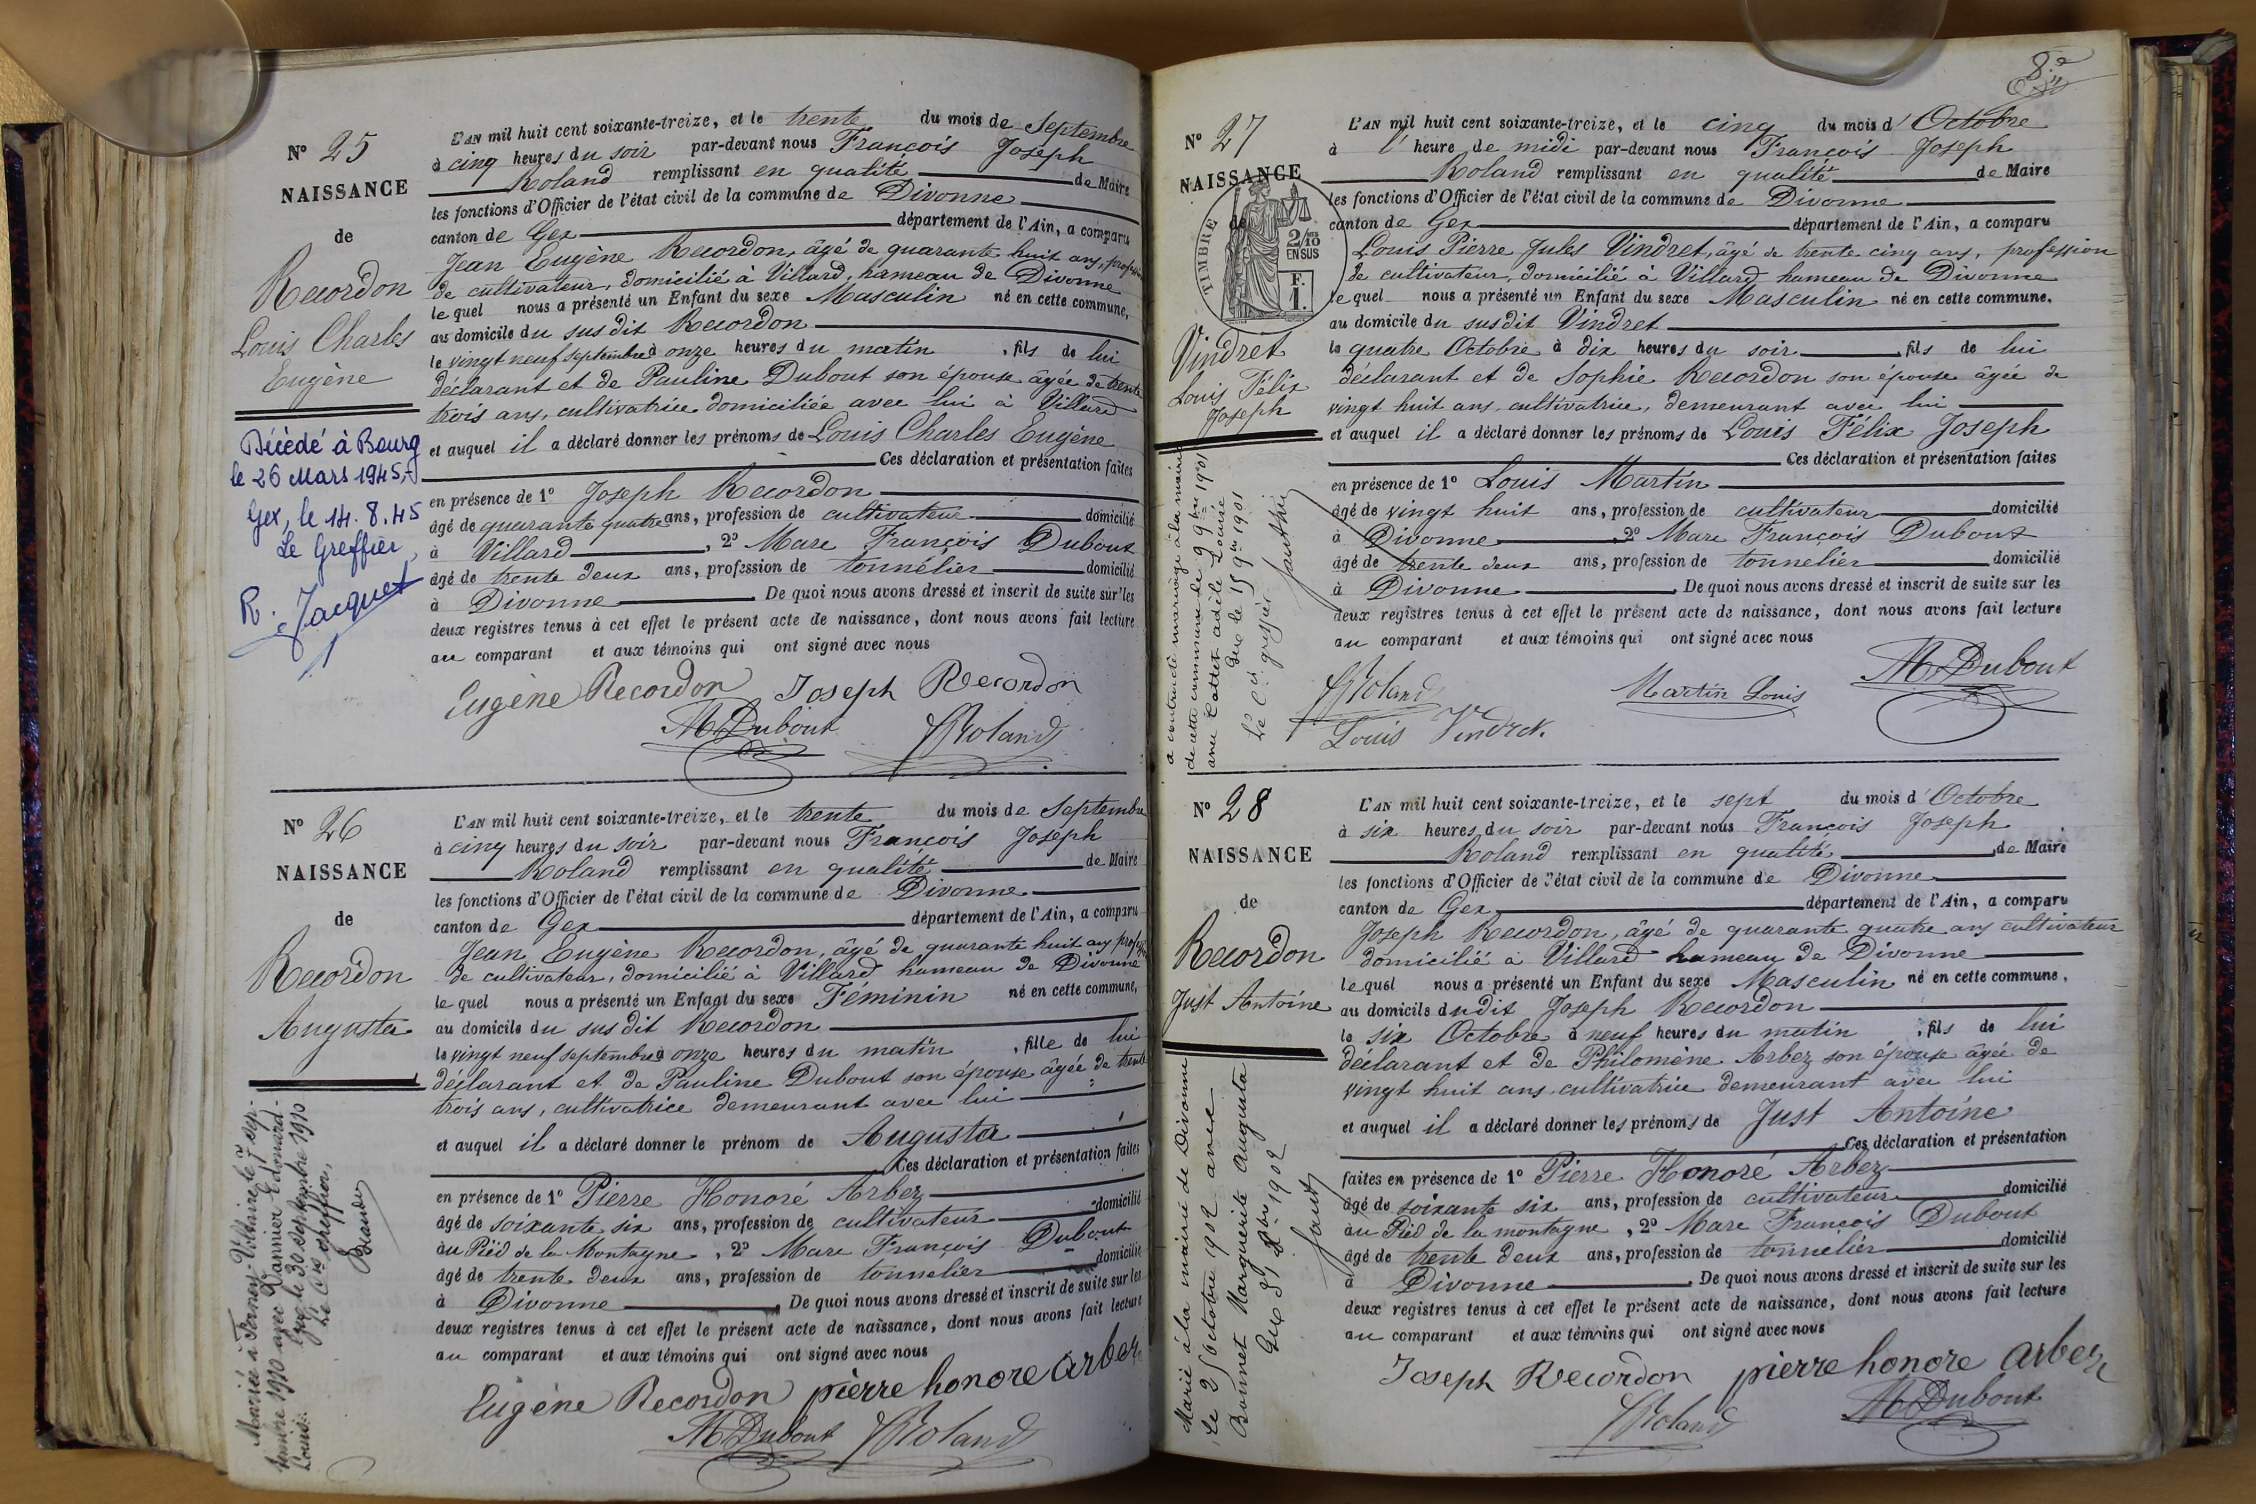 N° 25
NAISSANCE
de
Recordon
Louis Charles
Eugène
Décédé à Bourg
le 26 Mars 1945,
Gex, le 14.8.45
Le Greffier,
R. Jacquet
L'AN mil huit cent soixante-treize, et le trente du mois de Septembre
à cinq heures du soir par-devant nous François Joseph
Roland remplissant en qualité de Maire
les fonctions d'Officier de l'état civil de la commune de Divonne
canton de Gex département de l'Ain, a comparu
Jean Eugène Recordon, âgé de quarante huit ans, profession
de cultivateur, domicilié à Villard, hameau de Divonne
lequel nous a présenté un Enfant du sexe Masculin né en cette commune,
au domicile du susdit Recordon
le vingt neuf septembre à onze heures du matin, fils de lui
déclarant et de Pauline Dubout son épouse âgée de trente
trois ans, cultivatrice domiciliée avec lui à Villard
et auquel il a déclaré donner les prénoms de Louis Charles Eugène
Ces déclaration et présentation faites
en présence de 1° Joseph Recordon
âgé de quarante quatre ans, profession de cultivateur domicilié
à Villard, 2° Marc François Dubout
âgé de trente deux ans, profession de tonnélier domicilié
à Divonne. De quoi nous avons dressé et inscrit de suite sur les
deux registres tenus à cet effet le présent acte de naissance, dont nous avons fait lecture
au comparant et aux témoins qui ont signé avec nous
Eugène Recordon Joseph Recordon
M Dubout JRoland
N° 26
NAISSANCE
de
Recordon
Augusta
Mariée à Ferney-Voltaire le 7 sep-
tembre 1910 avec Edouard-
Louis.
Gex, le 30 septembre 1910
Le Cis greffier,
L'AN mil huit cent soixante-treize, et le trente du mois de Septembre
à cinq heures du soir par-devant nous François Joseph
Roland remplissant en qualité de Maire
les fonctions d'Officier de l'état civil de la commune de Divonne
canton de Gex département de l'Ain, a comparu
Jean Eugène Recordon, âgé de quarante huit ans profession
de cultivateur, domicilié à Villard hameau de Divonne
lequel nous a présenté un Enfant du sexe Féminin né en cette commune,
au domicile du susdit Recordon
le vingt neuf septembre à onze heures du matin, fille de lui
déclarant et de Pauline Dubout son épouse âgée de trente
trois ans, cultivatrice demeurant avec lui
et auquel il a déclaré donner le prénom de Augusta
Ces déclaration et présentation faites
en présence de 1° Pierre Honoré Arbez
âgé de soixante six ans, profession de cultivateur domicilié
au Pied de la Montagne, 2° Marc François Dubout
âgé de trente deux ans, profession de tonnelier domicilié
à Divonne. De quoi nous avons dressé et inscrit de suite sur les
deux registres tenus à cet effet le présent acte de naissance, dont nous avons fait lecture
au comparant et aux témoins qui ont signé avec nous
Eugène Recordon pierre honore arbez
M Dubout JRoland
N° 27
NAISSANCE
de
TIMBRE
2/10
EN SUS
F.
1.
Vindret
Louis Félix
Joseph
a contracté mariage à la mairie
de cette commune le 9 9bre 1901
avec Cottet adèle Louise
Gex le 15 9bre 1901
Le Cis greffier
L'AN mil huit cent soixante-treize, et le cinq du mois d'Octobre
à l' heure de midi par-devant nous François Joseph
Roland remplissant en qualité de Maire
les fonctions d'Officier de l'état civil de la commune de Divonne
canton de Gex département de l'Ain, a comparu
Louis Pierre Jules Vindret, âgé de trente cinq ans, profession
de cultivateur, domicilié à Villard hameau de Divonne
lequel nous a présenté un Enfant du sexe Masculin né en cette commune.
au domicile du susdit Vindret
le quatre Octobre à dix heures du soir, fils de lui
déclarant et de Sophie Recordon son épouse âgée de
vingt huit ans, cultivatrice, demeurant avec lui
et auquel il a déclaré donner les prénoms de Louis Félix Joseph
Ces déclaration et présentation faites
en présence de 1° Louis Martin
âgé de vingt huit ans, profession de cultivateur domicilié
à Divonne, 2° Marc François Dubout
âgé de trente deux ans, profession de tonnelier domicilié
à Divonne. De quoi nous avons dressé et inscrit de suite sur les
deux registres tenus à cet effet le présent acte de naissance, dont nous avons fait lecture
au comparant et aux témoins qui ont signé avec nous
JRoland Martin Louis M Dubout
Louis Vindret
N° 28
NAISSANCE
de
Recordon
Just Antoine
Marié à la mairie de Divonne
le 25 octobre 1902 avec
Bonnet Marguerite Augusta
Gex 1902
L'AN mil huit cent soixante-treize, et le sept du mois d'Octobre
à six heures du soir par-devant nous François Joseph
Roland remplissant en qualité de Maire
les fonctions d'Officier de l'état civil de la commune de Divonne
canton de Gex département de l'Ain, a comparu
Joseph Recordon, âgé de quarante quatre ans cultivateur
domicilié à Villard hameau de Divonne
lequel nous a présenté un Enfant du sexe Masculin né en cette commune,
au domicile dudit Joseph Recordon
le six Octobre à neuf heures du matin, fils de lui
déclarant et de Philomène Arbez son épouse âgée de
vingt huit ans cultivatrice demeurant avec lui
et auquel il a déclaré donner les prénoms de Just Antoine
Ces déclaration et présentation
faites en présence de 1° Pierre Honoré Arbez
âgé de soixante six ans, profession de cultivateur domicilié
au Pied de la montagne, 2° Marc François Dubout
âgé de trente deux ans, profession de tonnelier domicilié
à Divonne. De quoi nous avons dressé et inscrit de suite sur les
deux registres tenus à cet effet le présent acte de naissance, dont nous avons fait lecture
au comparant et aux témoins qui ont signé avec nous
Joseph Recordon pierre honore arbez
JRoland M Dubout